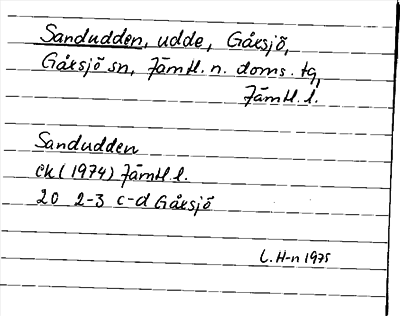 Sandudden, udde, Gåxsjö,
Gåxsjö sn, Jämtl. n. doms. tg,
Jämtl. l.
Sandudden
ek (1974) Jämtl. l.
20 2-3 c-d Gåxsjö
L. H-n 1975